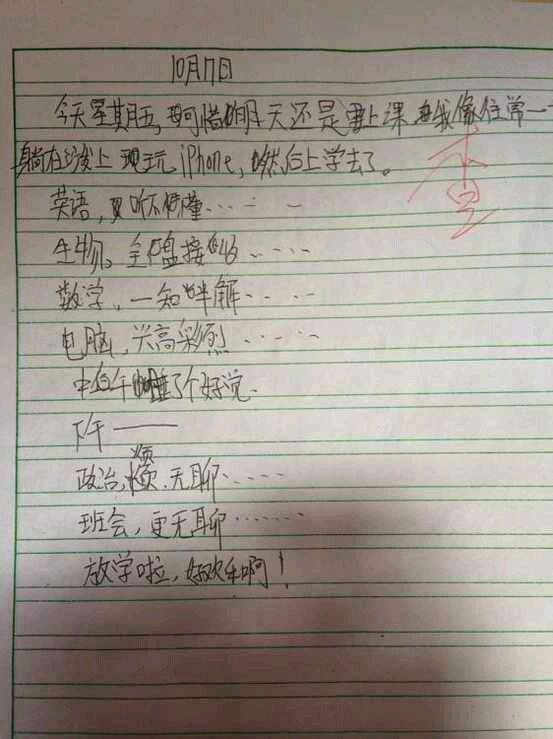 10月17日
今天星期五,可惜明天还是要上课,我像往常一
躺在沙发上玩iPhone,然后上学去了。
英语,又听不懂……
生物,全盘接收……
数学,一知半解……
电脑,兴高彩烈……
中午睡了个好觉.
下午——
政治,烦.无聊……
班会,更无聊……
放学啦,好欢乐啊!